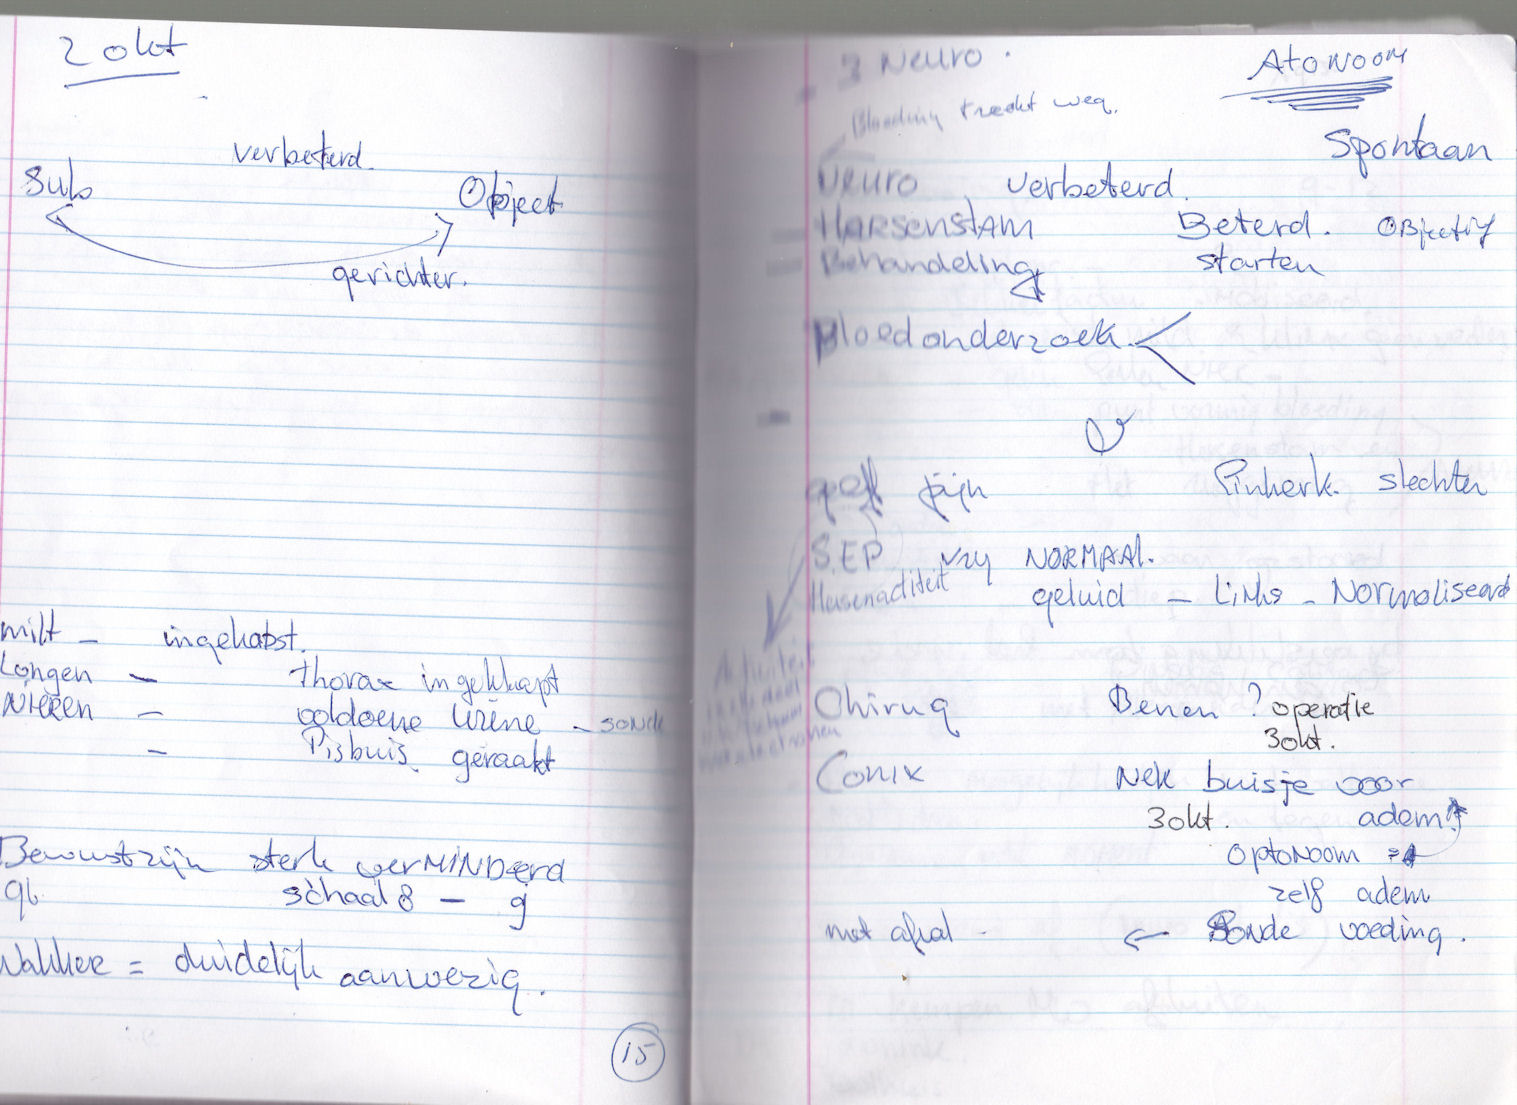 2 okt
verbeterd.
Sub Object
gerichter.
milt - ingekabst.
Longen - thorax ingeklapt
Nieren - voldoene Urine - sonde
- Pisbuis geraakt
Bewustzijn sterk verMINDerd
schaal 8 - 9
Wakker = duidelijk aanwezig.
15
3 Neuro . Atonoom
Bloeding trekt weg.
Spontaan
Neuro verbeterd.
HARSENSTAM Beterd. OBjectif
Behandeling starten
Bloedonderzoek.
geeft pijn Pinkerk. slechter
S.E.P. vry NORMAAl.
Hersenactiteit geluid - Links - Normaliseerd
Activiteit
Chirug Benen ? operatie
3okt.
Conix Nek buisje voor
3okt. adem
optonoom =
zelf adem
met afval - ← Sonde voeding.